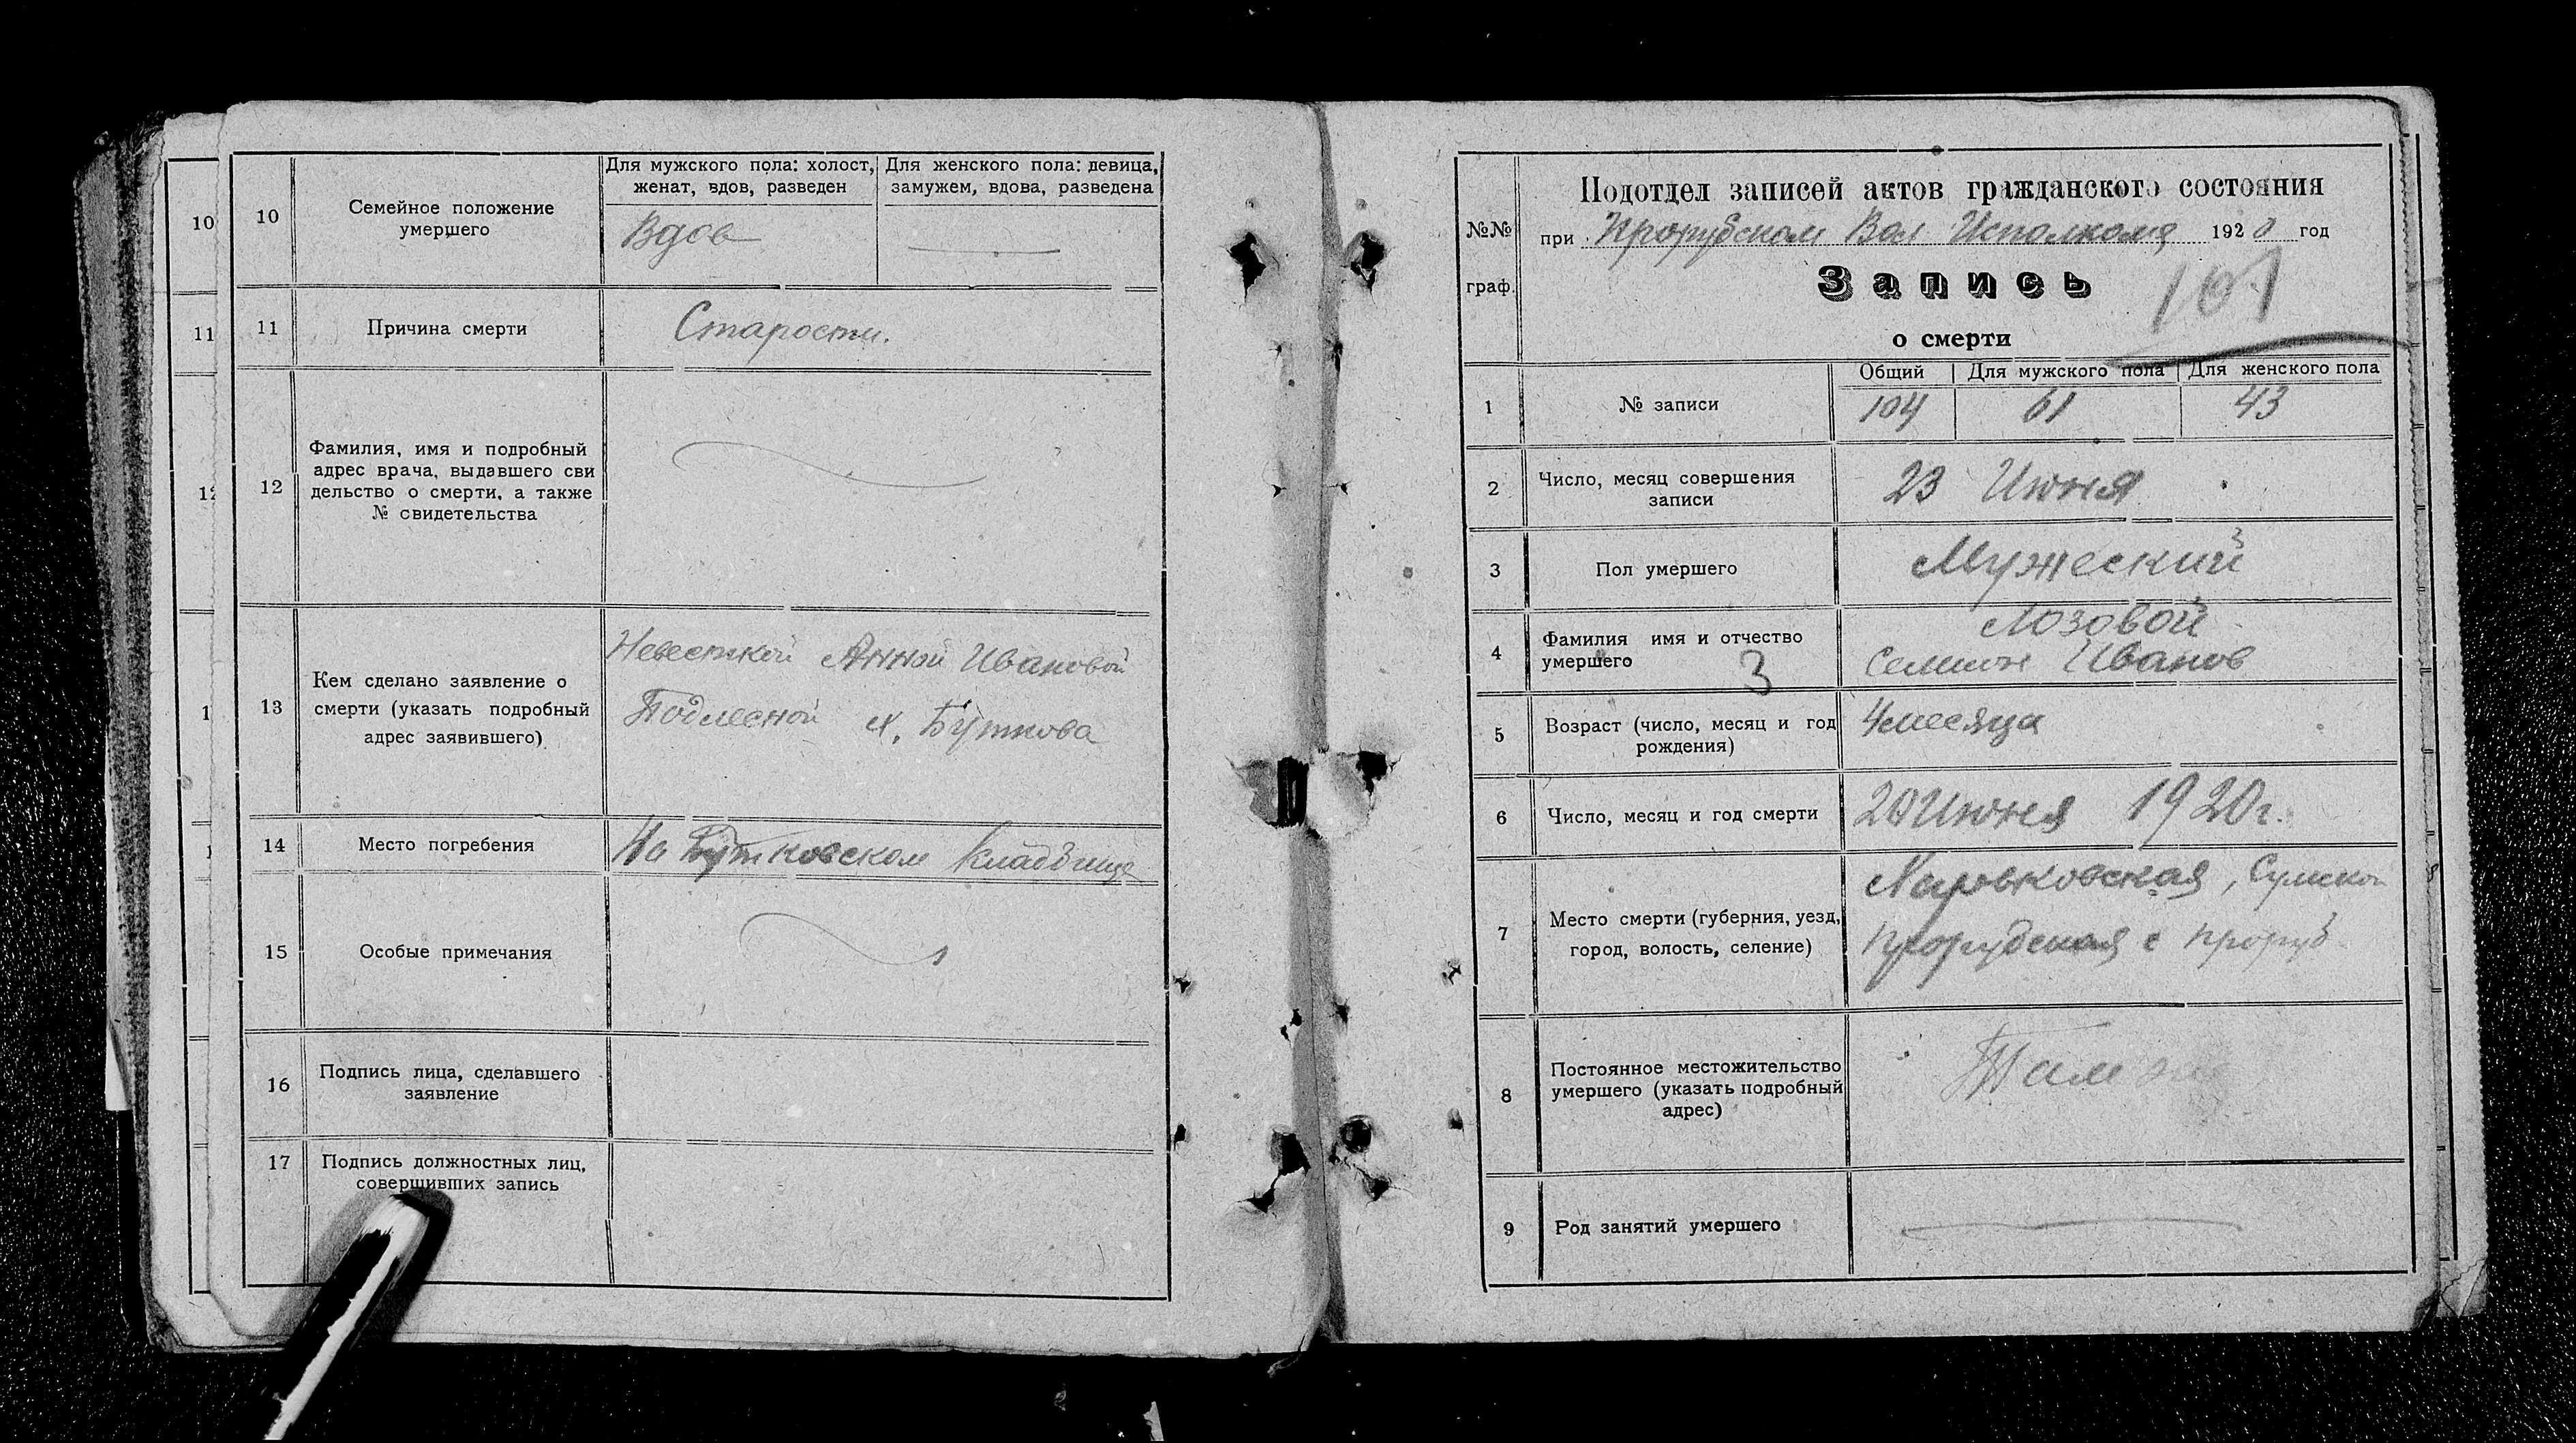 10
11
12
1
1
10
Семейное положение
умершего
Для мужского пола: холост,
женат, вдов, разведен
Для женского пола: девица,
замужем, вдова, разведена
Вдов
11
Причина смерти
Старости.
12
Фамилия, имя и подробный
адрес врача, выдавшего сви
дельство о смерти, а также
№ свидетельства
13
Кем сделано заявление о
смерти (указать подробный
адрес заявившего)
Невесткой Анной Ивановой
Подлесной х. Буткова
14
Место погребения
На Бутковском кладбище
15
Особые примечания
16
Подпись лица, сделавшего
заявление
17
Подпись должностных лиц,
совершивших запись
№№
граф.
Подотдел записей актов гражданского состояния
при Прорубском Вол Исполкома 1920 год
Запись
о смерти
107
1
№ записи
Общий
Для мужского пола
Для женского пола
104
61
43
2
Число, месяц совершения
записи
23 Июня
3
Пол умершего
Мужеский
4
Фамилия имя и отчество
умершего
3
Лозовой
Семион Иванов
5
Возраст (число, месяц и год
рождения)
4 месяца
6
Число, месяц и год смерти
20 Июня 1920 г.
7
Место смерти (губерния, уезд,
город, волость, селение)
Харьковская, Сумской
Прорубская с Проруб
8
Постоянное местожительство
умершего (указать подробный
адрес)
Там же
9
Род занятий умершего